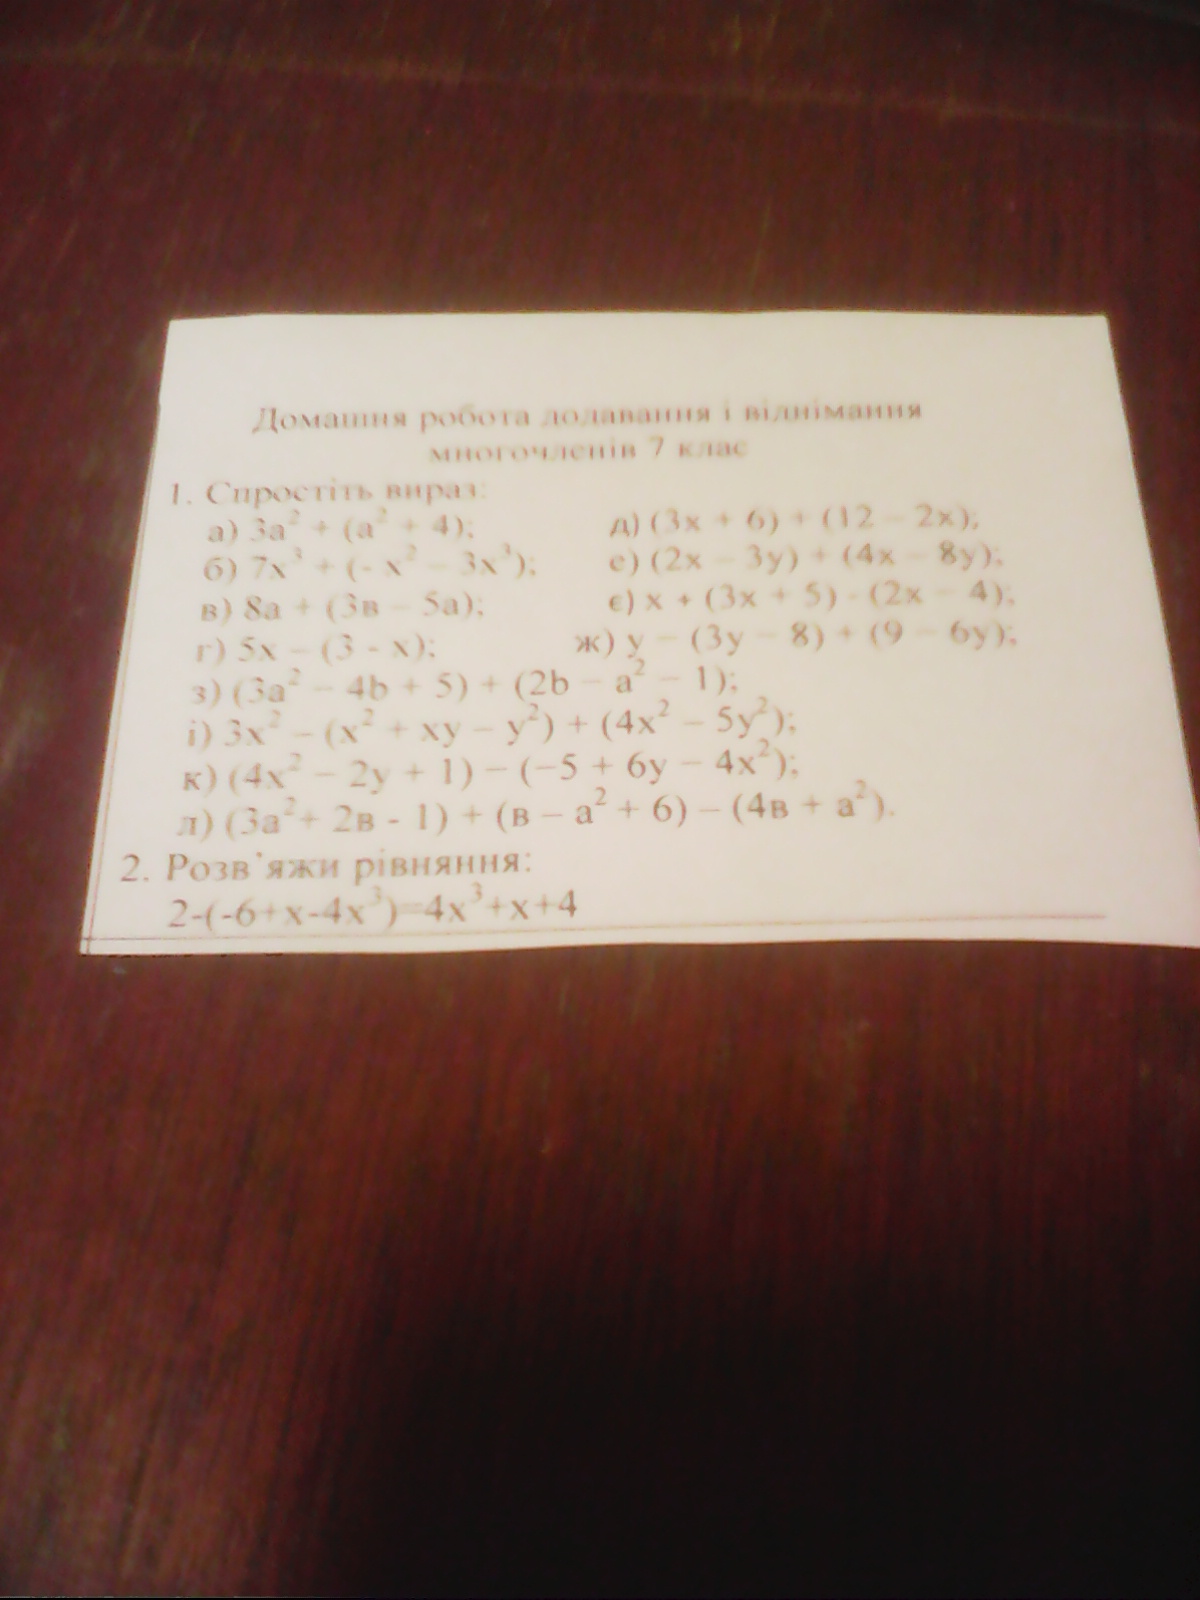 Домашня робота додавання і віднімання
многочленів 7 клас
1. Спростіть вираз:
а) 3a² + (a² + 4);
д) (3x + 6) + (12 – 2x);
б) 7x³ + (- x² – 3x³);
е) (2x – 3y) + (4x – 8y);
в) 8а + (3в – 5а);
є) x + (3x + 5) - (2x – 4);
г) 5x – (3 - x);
ж) y – (3y – 8) + (9 – 6y);
з) (3a² – 4b + 5) + (2b – a² – 1);
і) 3x² – (x² + xy – y²) + (4x² – 5y²);
к) (4x² – 2y + 1) – (–5 + 6y – 4x²);
л) (3a²+ 2в - 1) + (в – a² + 6) – (4в + a²).
2. Розв'яжи рівняння:
2-(-6+x-4x³)=4x³+x+4